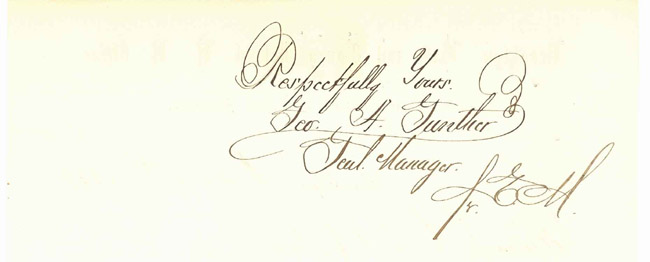 Respectfully Yours.
Geo. A. Gunther
Genl. Manager.